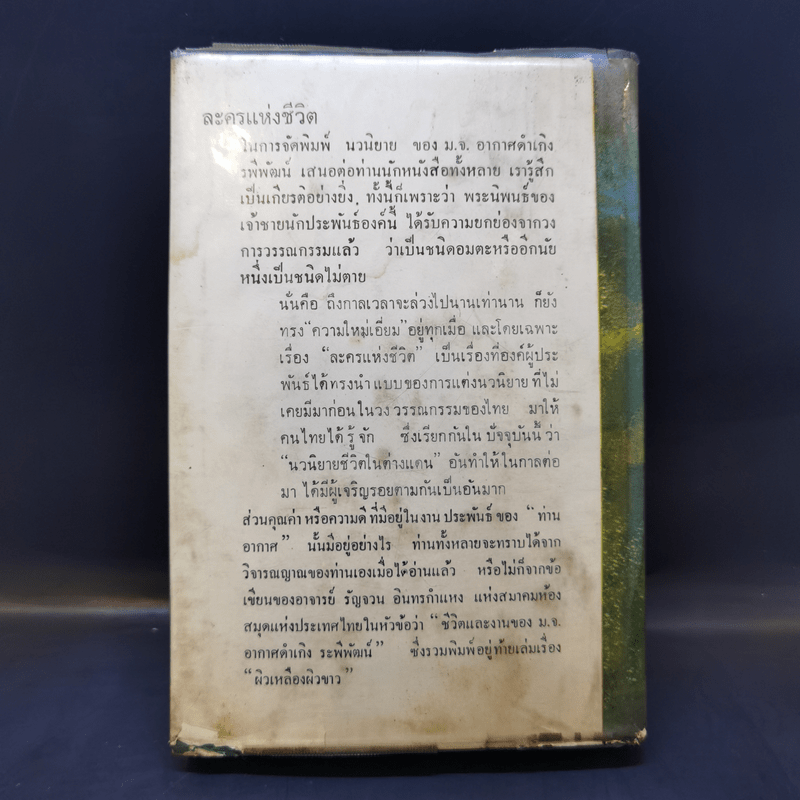 ละครแห่งชีวิต
ในการจัดพิมพ์ นวนิยาย ของ ม.จ. อากาศดำเกิง
รพีพัฒน์ เสนอต่อท่านนักหนังสือทั้งหลาย เรารู้สึก
เป็นเกียรติอย่างยิ่ง. ทั้งนี้ก็เพราะว่า พระนิพนธ์ของ
เจ้าชายนักประพันธ์องค์นี้ ได้รับความยกย่องจากวง
การวรรณกรรมแล้ว ว่าเป็นชนิดอมตะหรืออีกนัย
หนึ่งเป็นชนิดไม่ตาย
นั่นคือ ถึงกาลเวลาจะล่วงไปนานเท่านาน ก็ยัง
ทรง "ความใหม่เอี่ยม" อยู่ทุกเมื่อ และโดยเฉพาะ
เรื่อง "ละครแห่งชีวิต" เป็นเรื่องที่องค์ผู้ประ
พันธ์ได้ทรงนำ แบบของการแต่งนวนิยาย ที่ไม่
เคยมีมาก่อน ในวง วรรณกรรมของไทย มาให้
คนไทยได้ รู้ จัก ซึ่งเรียกกันใน ปัจจุบันนี้ ว่า
"นวนิยายชีวิตในต่างแดน" อันทำให้ในกาลต่อ
มา ได้มีผู้เจริญรอยตามกันเป็นอันมาก
ส่วนคุณค่า หรือความดี ที่มีอยู่ในงาน ประพันธ์ ของ "ท่าน
อากาศ" นั้นมีอยู่อย่างไร ท่านทั้งหลายจะทราบได้จาก
วิจารณญาณของท่านเองเมื่อได้อ่านแล้ว หรือไม่ก็จากข้อ
เขียนของอาจารย์ รัญจวน อินทรกำแหง แห่งสมาคมห้อง
สมุดแห่งประเทศไทยในหัวข้อว่า "ชีวิตและงานของ ม.จ.
อากาศดำเกิง ระพีพัฒน์" ซึ่งรวมพิมพ์อยู่ท้ายเล่มเรื่อง
"ผิวเหลืองผิวขาว"